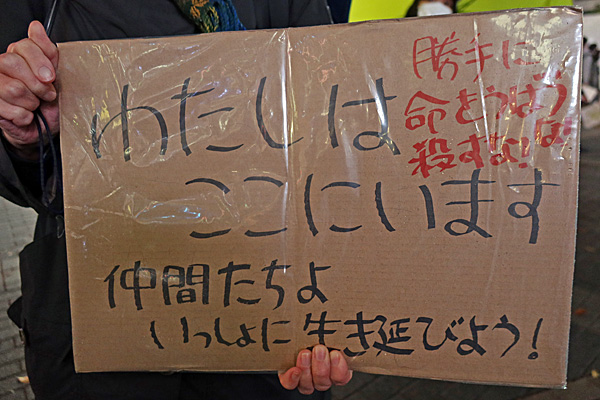 勝手に
命をうばうな
殺すな!
わたしは
ここにいます
仲間たちよ
いっしょに生き延びよう!